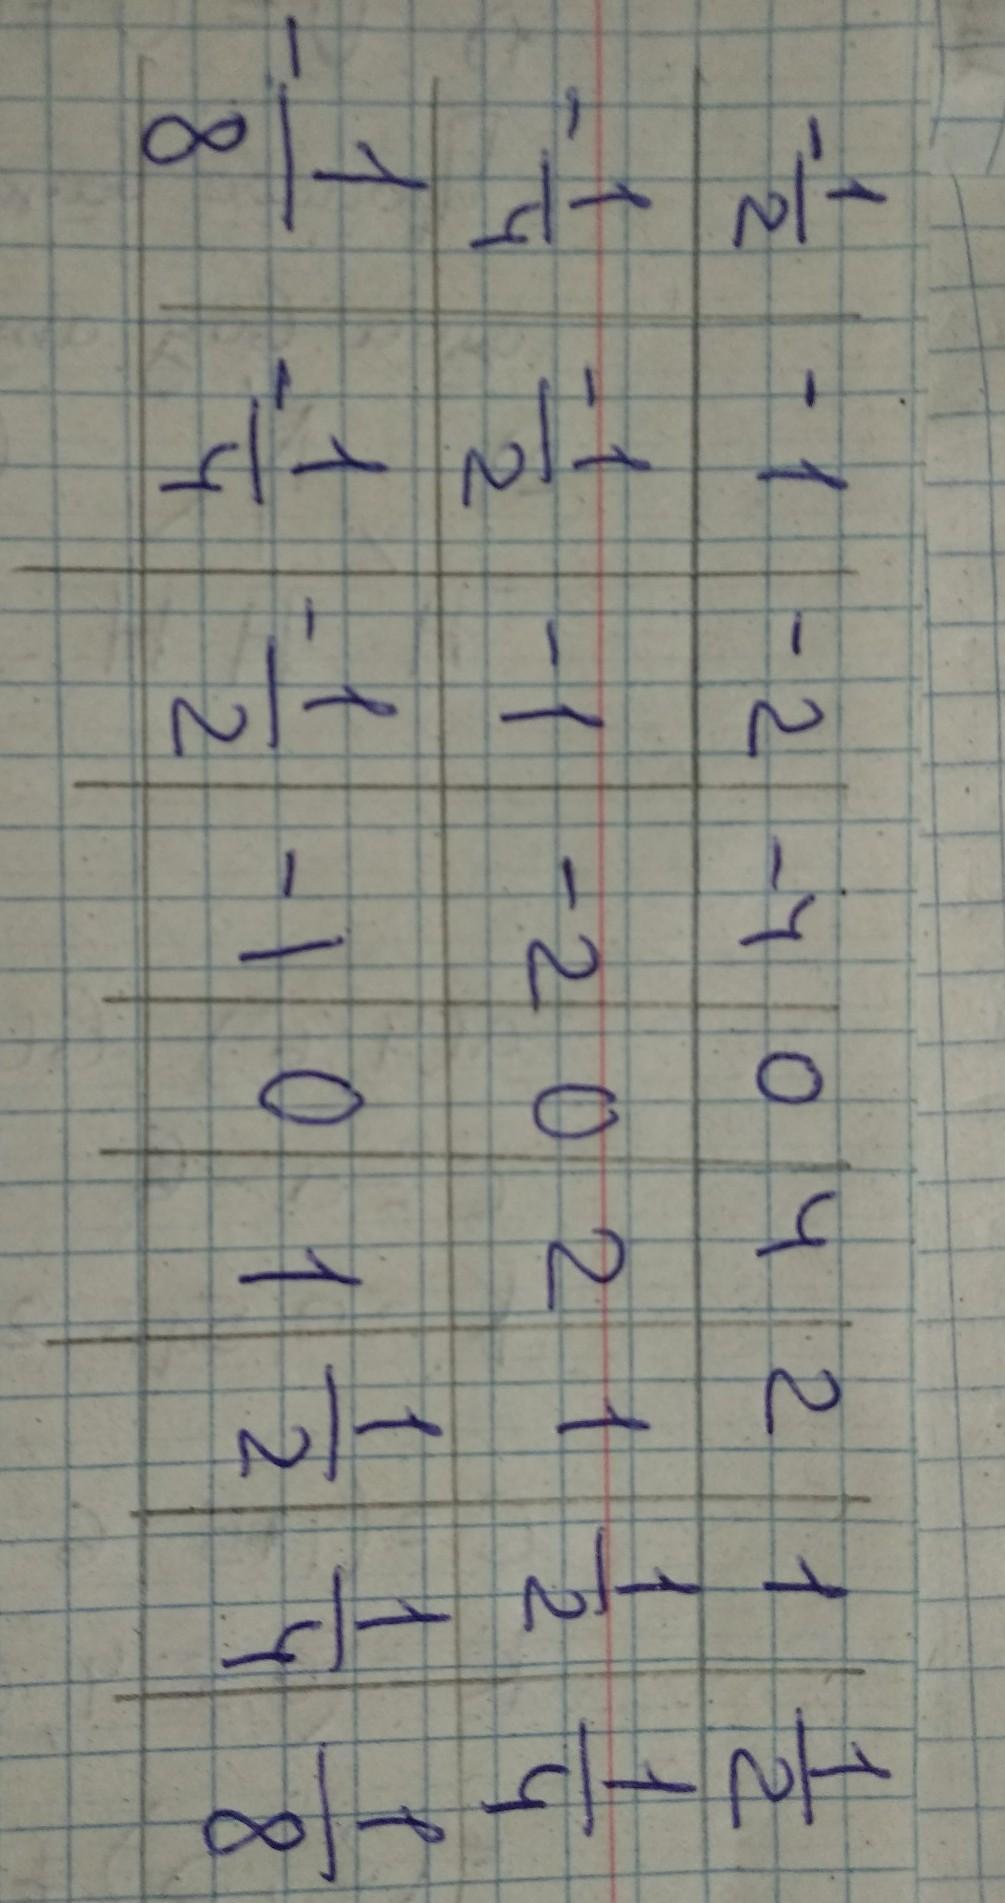 -1/2 -1 -2 -4 0 4 2 1 1/2
-1/4 -1/2 -1 -2 0 2 1 1/2 1/4
-1/8 -1/4 -1/2 -1 0 1 1/2 1/4 1/8